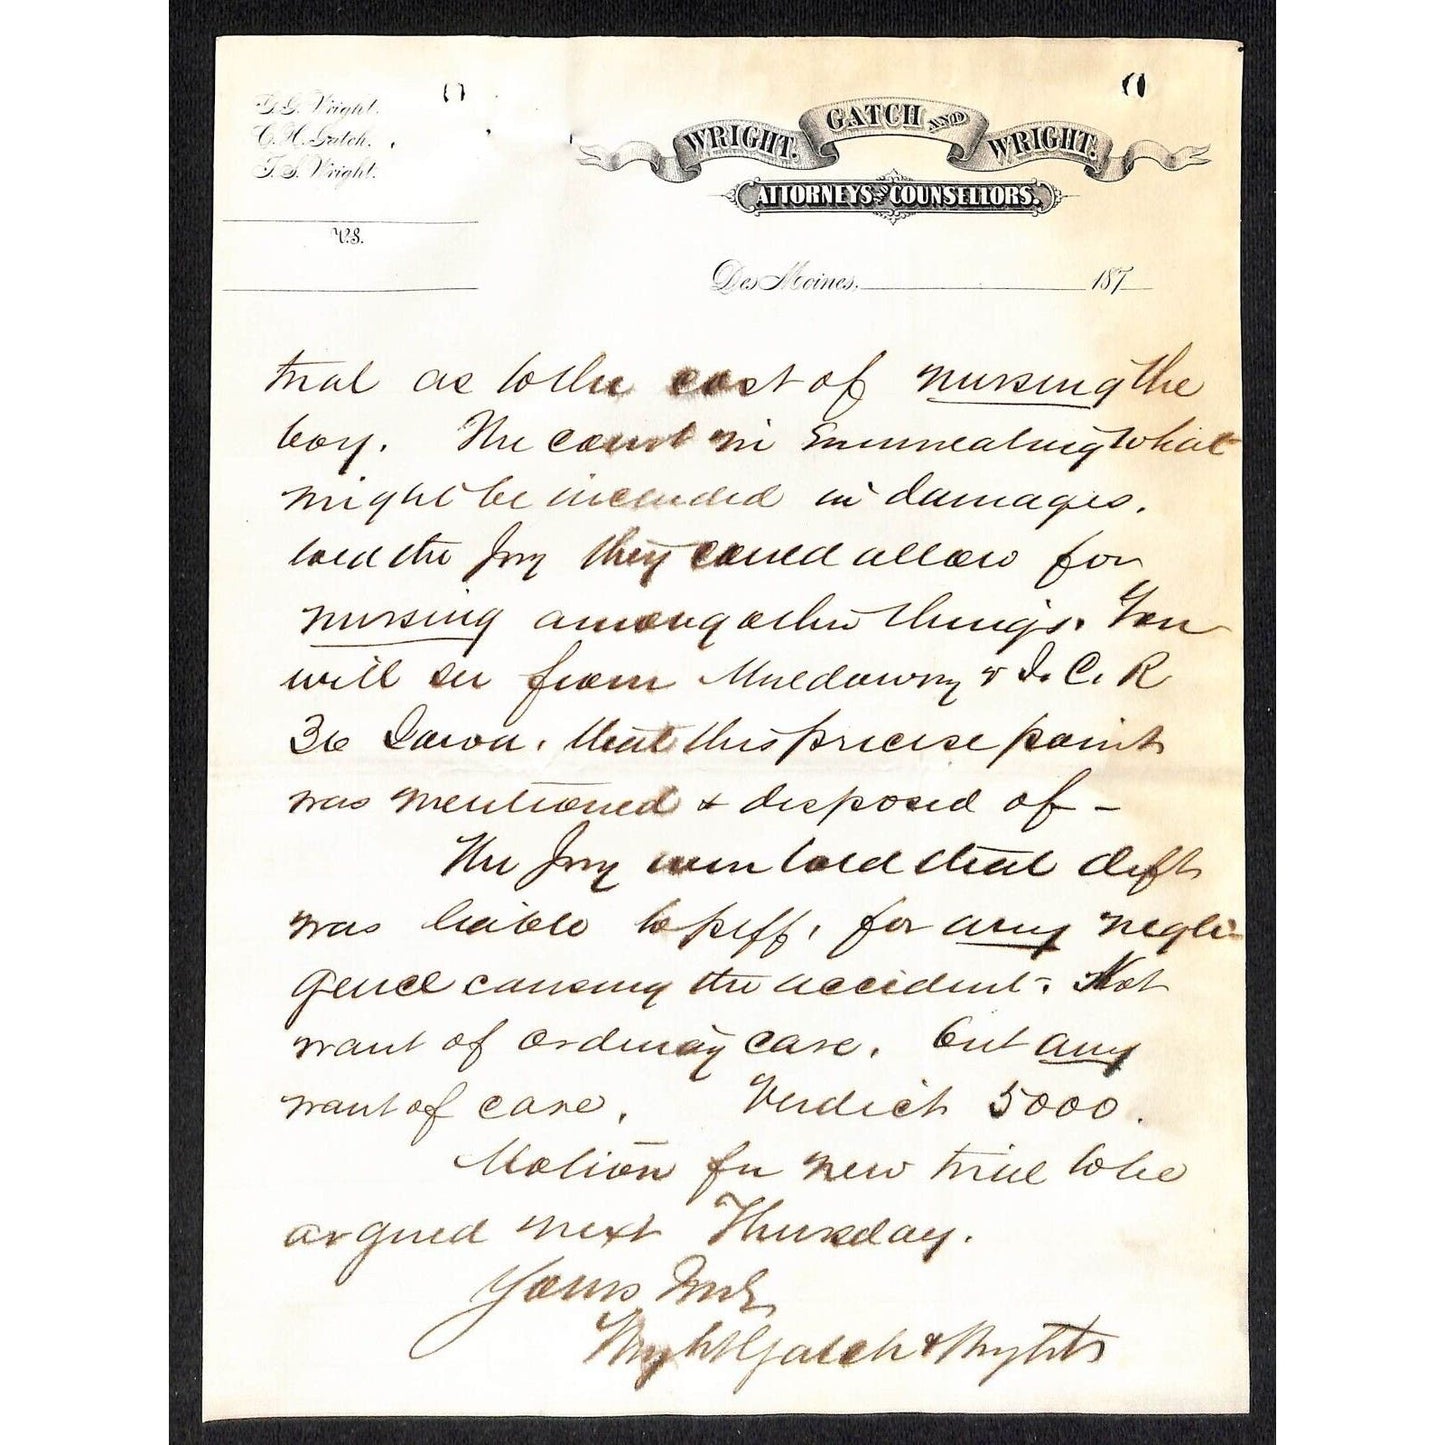 G.G. Wright.
C.H. Gatch.
T.S. Wright.
WRIGHT. GATCH AND WRIGHT.
ATTORNEYS AND COUNSELLORS.
vs.
Des Moines, 187
trial as to the cost of nursing the
boy. The court in enumerating what
might be included in damages.
told the Jury they could allow for
nursing among other things. You
will see from Muldowny v I. C. R
36 Iowa. that this precise point
was mentioned & disposed of –
The Jury were told that deft
was liable to plff. for any negli-
gence causing the accident. Not
want of ordinary care. but any
want of care. Verdict 5000.
Motion for new trial to be
argued next Thursday.
Yours Truly
Wright Gatch & Wright